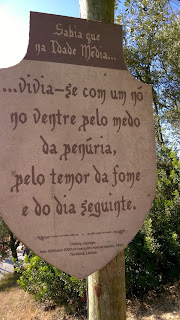 Sabia que
na Idade Média...
...vivia-se com um nó
no ventre pelo medo
da penúria,
pelo temor da fome
e do dia seguinte.